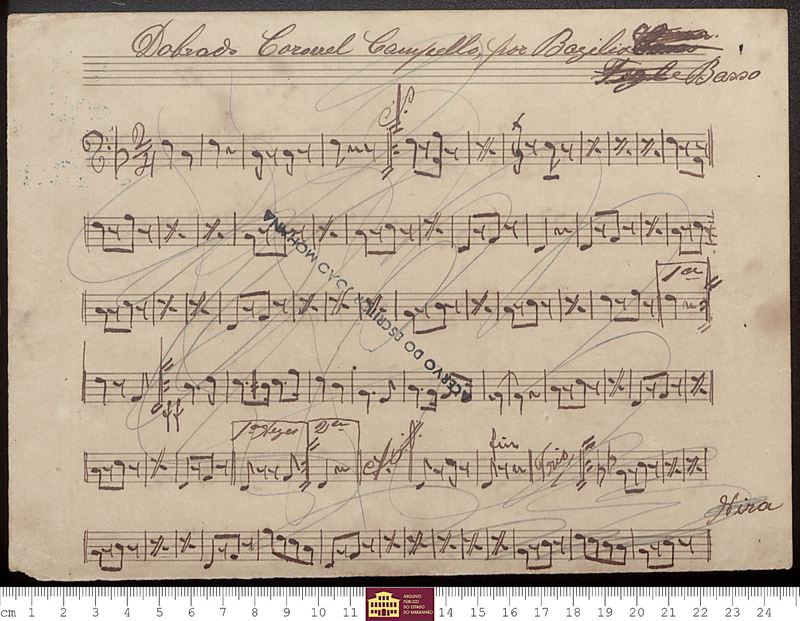 Dobrado Coronel Campello, por Bazilio
Basso
2/4
1ª
1ª Vez 2ª
fim Trio
Vira
ACERVO DO ESCRITOR JOÃO MOHANA
cm 1 2 3 4 5 6 7 8 9 10 11 14 15 16 17 18 19 20 21 22 23 24
ARQUIVO
PÚBLICO
DO ESTADO
DO MARANHÃO